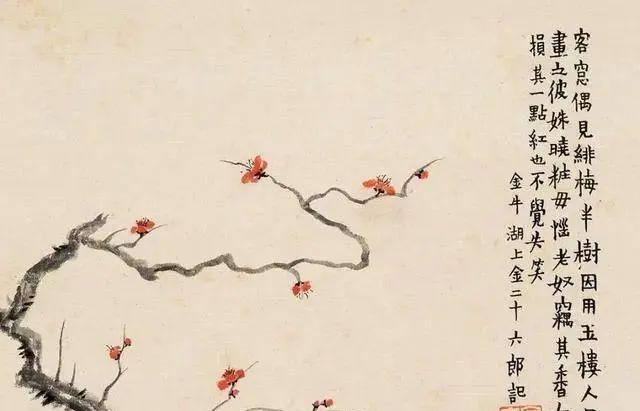 客窓偶見緋梅半樹因用玉樓人
畫之彼姝曉粧毋惱老奴竊其香
損其一點紅也不覺失笑
金牛湖上金二十六郎記